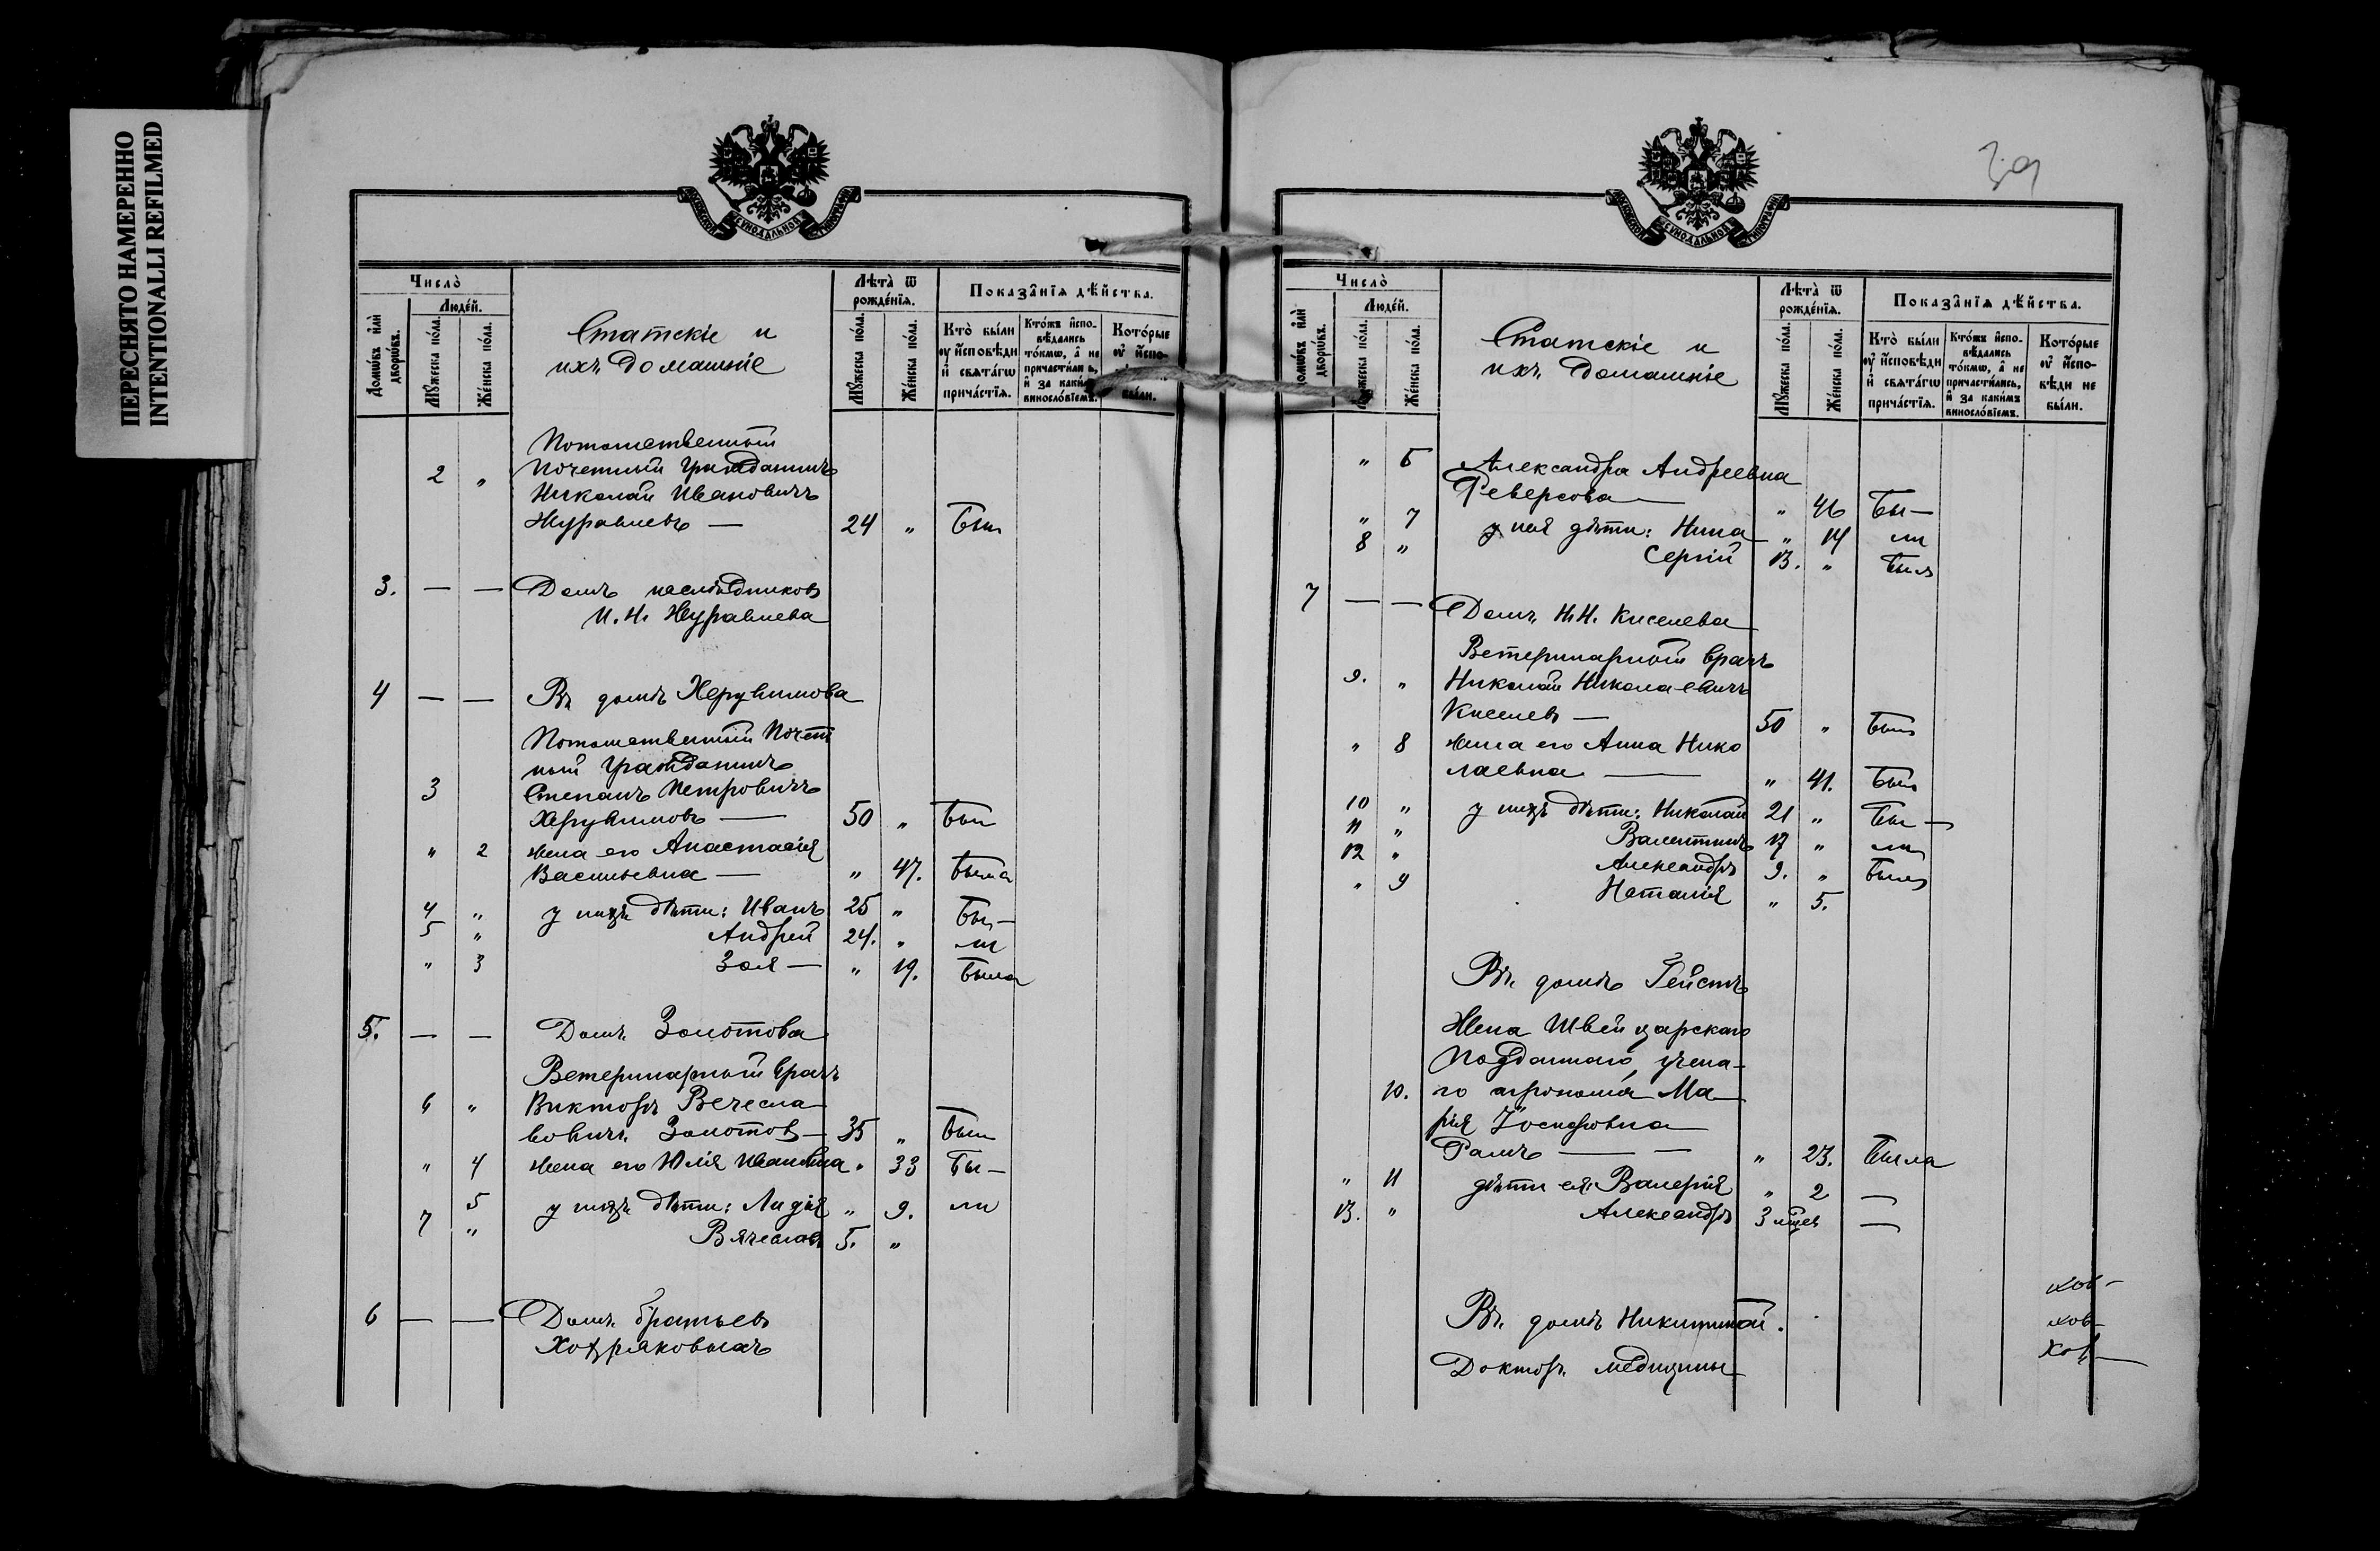 ПЕРЕСНЯТО НАМЕРЕННО
INTENTIONALLI REFILMED
МОСКОВСКОЙ СѴНОДАЛЬНОЙ ТИПОГРАФІИ
Число̀
Люде́й.
Домѡ́въ и҆лѝ дворѡ́въ.
Мꙋ́жеска по́ла.
Же́нска по́ла.
Статскіе и
ихъ домашніе
Лѣта̀ ѿ рожде́нїѧ.
Мꙋ́жеска по́ла.
Же́нска по́ла.
Показа̂нїѧ дѣ́йства.
Кто̀ бы́ли ᲂу҆ и҆сповѣди и҆ свѧта́гѡ прича́стїѧ.
Кто́жъ и҆сповѣдались то́кмѡ, а҆ не причасти́лись, и҆ за каки́мъ винословїемъ.
Кото́рые ᲂу҆ и҆спо-
бы́ли.
Потомственный
2 " почетный Гражданинъ
Николай Ивановичъ
Журавлевъ — 24 " былъ
3. — — Домъ наслѣдниковъ
И. И. Журавлева
4 — — Въ домѣ Херувимова
Потомственный Почет
ный Гражданинъ
3 Степанъ Петровичъ
Херувимовъ — 50 " был
" 2 жена его Анастасія
Васильевна — " 47. была
4 " у нихъ дѣти: Иванъ 25 " бы-
5 " Андрей 24. " ли
" 3 Зоя — " 19. была
5. — — Домъ Золотова
Ветеринарный врачъ
6 " Викторъ Вячесла
вовичъ Золотовъ — 35 " былъ
" 4 жена его Юлія Ивановна " 33 бы-
5 у нихъ дѣти: Лидія " 9. ли
7 " Вячеславъ 5. "
6 — — Домъ братьевъ
Хохряковыхъ
39
МОСКОВСКОЙ СѴНОДАЛЬНОЙ ТИПОГРАФІИ
Число̀
Люде́й.
Домѡ́въ и҆лѝ дворѡ́въ.
Мꙋ́жеска по́ла.
Же́нска по́ла.
Статскіе и
ихъ домашніе
Лѣта̀ ѿ рожде́нїѧ.
Мꙋ́жеска по́ла.
Же́нска по́ла.
Показа̂нїѧ дѣ́йства.
Кто̀ бы́ли ᲂу҆ и҆сповѣди и҆ свѧта́гѡ прича́стїѧ.
Кто́жъ и҆сповѣдались то́кмѡ, а҆ не причасти́лись, и҆ за каки́мъ винословїемъ.
Кото́рые ᲂу҆ и҆сповѣди не бы́ли.
" 6 Александра Андреевна
Реверсова — " 46 бы—
" 7 у нея дѣти: Нина — " 14 ли
8 " Сергій 13. " былъ
7 — — Домъ Н. Н. Киселева
Ветеринарный врачъ
9. " Николай Николаевичъ
Киселевъ — 50 " былъ
" 8 жена его Анна Нико
лаевна — " 41. был
10 " у нихъ дѣти: Николай 21 " бы —
11 " Валентинъ 17 " ли
12 " Александръ 9. " былъ
" 9 Наталія " 5.
Въ домѣ Гейстъ
Жена Швейцарскаго
подданнаго, учена-
10. го агронома Ма-
рія Іосифовна
Рамъ — — " 23. была
" 11 дѣти ея: Валерія " 2 —
13. " Александръ 3 мѣся —
Въ домѣ Никитиной.
Докторъ медицины
хов-
хов-
хов-